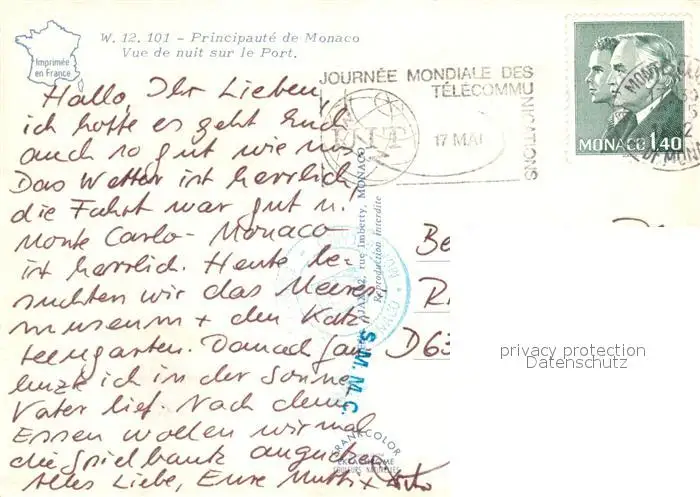 W. 12. 101 – Principauté de Monaco
Vue de nuit sur le Port.
Imprimée
en France
JOURNÉE MONDIALE DES
TÉLÉCOMMU
NICATIONS
17 MAI
MONACO 1,40
Hallo, Ihr Lieben,
ich hoffe es geht Euch
auch so gut wie uns
Das Wetter ist herrlich,
die Fahrt war gut u.
Monte Carlo - Monaco
ist herrlich. Heute be-
suchten wir das Meeres-
museum + den Kak-
teengarten. Danach faul
lenzte ich in der Sonne,
Vater lief. Nach dem
Essen wollen wir mal
die Spielbank angucken
Alles Liebe, Eure Mutti +
rue Imberty, MONACO
Reproduction Interdite
S.M.M.C.
KRANKCOLOR
EKTACHROME
COULEURS NATURELLES
Be
R
D 63
privacy protection
Datenschutz